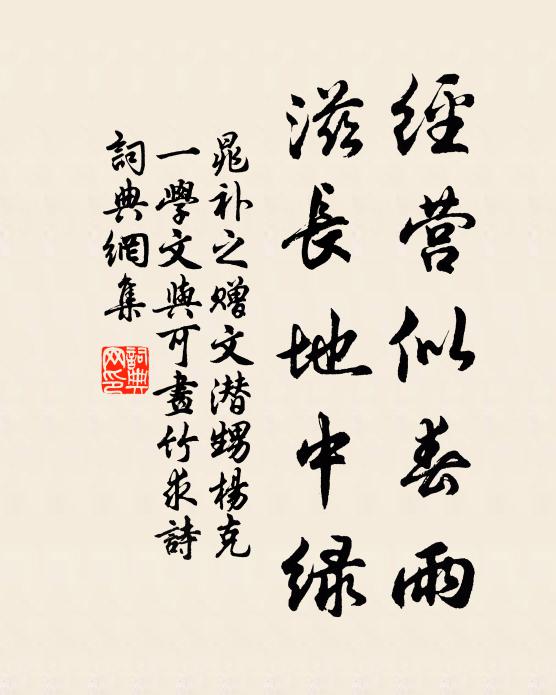 經营似春雨
滋長地中緑
晁补之赠文潜甥楊克
一學文與可畫竹求詩
詞典網集
詞典
网印